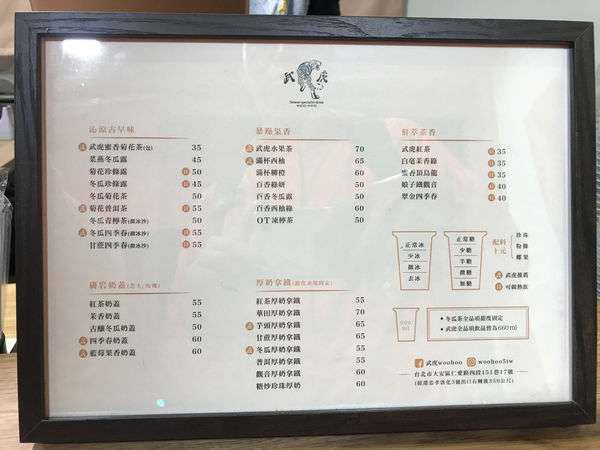 武虎
沁涼古早味
武 武虎蜜香菊花茶(包) 35
菜燕冬瓜露 45
菊花珍條露 日 50
冬瓜珍條露 日 45
冬瓜菊花茶 50
武 菊花普洱茶 日 55
冬瓜青檸茶(微冰沙) 50
武 冬瓜四季春(微冰沙) 日 55
甘蔗四季春(微冰沙) 日 55
暴點氣香
武 武虎水果茶 70
武 滿杯西柚 65
滿杯柳橙 60
百香綠妍 50
百香冬瓜露 50
百香西柚綠 60
OT凍檸茶 50
鮮萃茶香
武虎紅茶 日 35
白毫茉香綠 日 35
雲香頂烏龍 日 35
娘子鐵觀音 日 40
翠金四季春 日 40
正常冰
少冰
微冰
去冰
正常糖
少糖
半糖
微糖
無糖
配料十元
珍珠
粉條
椰果
武 武虎推薦
日 可做熱飲
廣岩奶蓋
紅茶奶蓋 55
茉香奶蓋 55
古釀冬瓜奶蓋 50
武 四季春奶蓋 60
武 藍莓果香奶蓋 60
厚奶拿鐵
紅茶厚奶拿鐵 55
華田厚奶拿鐵 70
武 芋頭厚奶拿鐵 65
甘蔗厚奶拿鐵 65
武 冬瓜厚奶拿鐵 55
普洱厚奶拿鐵 55
觀音厚奶拿鐵 60
糖炒珍珠厚奶 60
660 ml
• 冬瓜茶全品項甜度固定
• 武虎全品項飲品皆為660ml
武虎woohoo woohoo5tw
台北市大安區仁愛路四段151巷17號